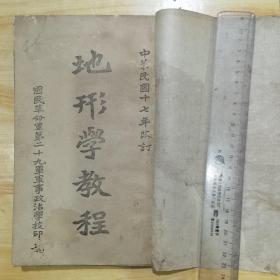 中華民國十七年改訂
地形學教程
國民革命軍第二十九軍軍事政治學校印